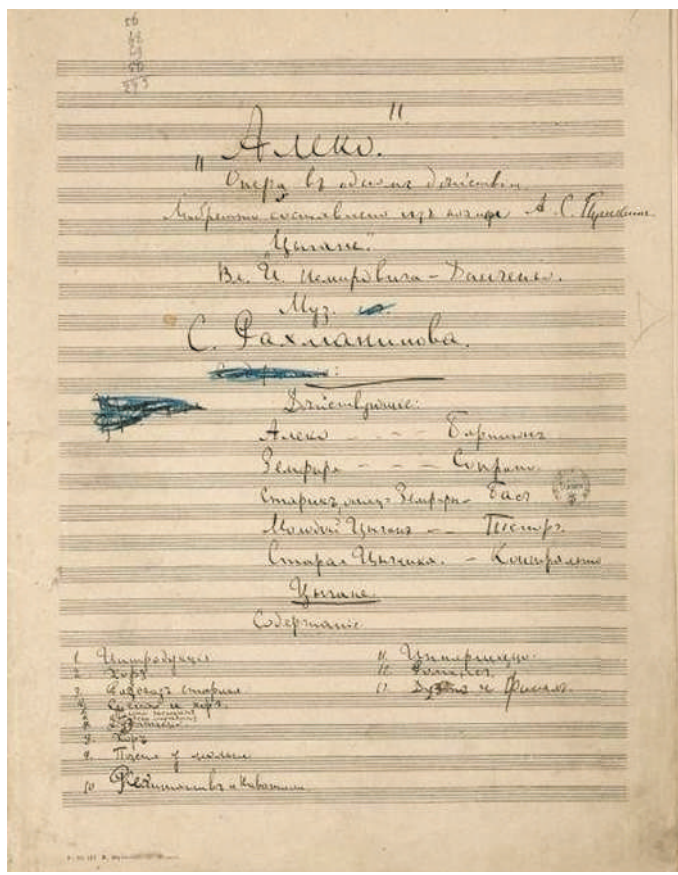 56
68
69
50
243
„Алеко."
Опера въ одномъ дѣйствіи
Либретто составлено изъ поэмы А. С. Пушкина
"Цыгане".
Вл. И. Немировича-Данченко.
Муз.
С. Рахманинова.
Дѣйствующие:
Алеко - - - Баритонъ
Земфира - - - Сопрано.
Старикъ, отецъ Земфиры - Басъ
Молодой Цыганъ - - Теноръ.
Старая Цыганка. - Контральто
Цыгане.
Содержаніе
1. Интродукція
2. Хоръ
3. Разсказъ старика
Сцена и хоръ.
8. Хоръ
9. Пѣсня у люльки
10 Речитативъ и Каватина
11. Интермеццо.
12. Романсъ.
13. Дуэтъ и Финалъ.